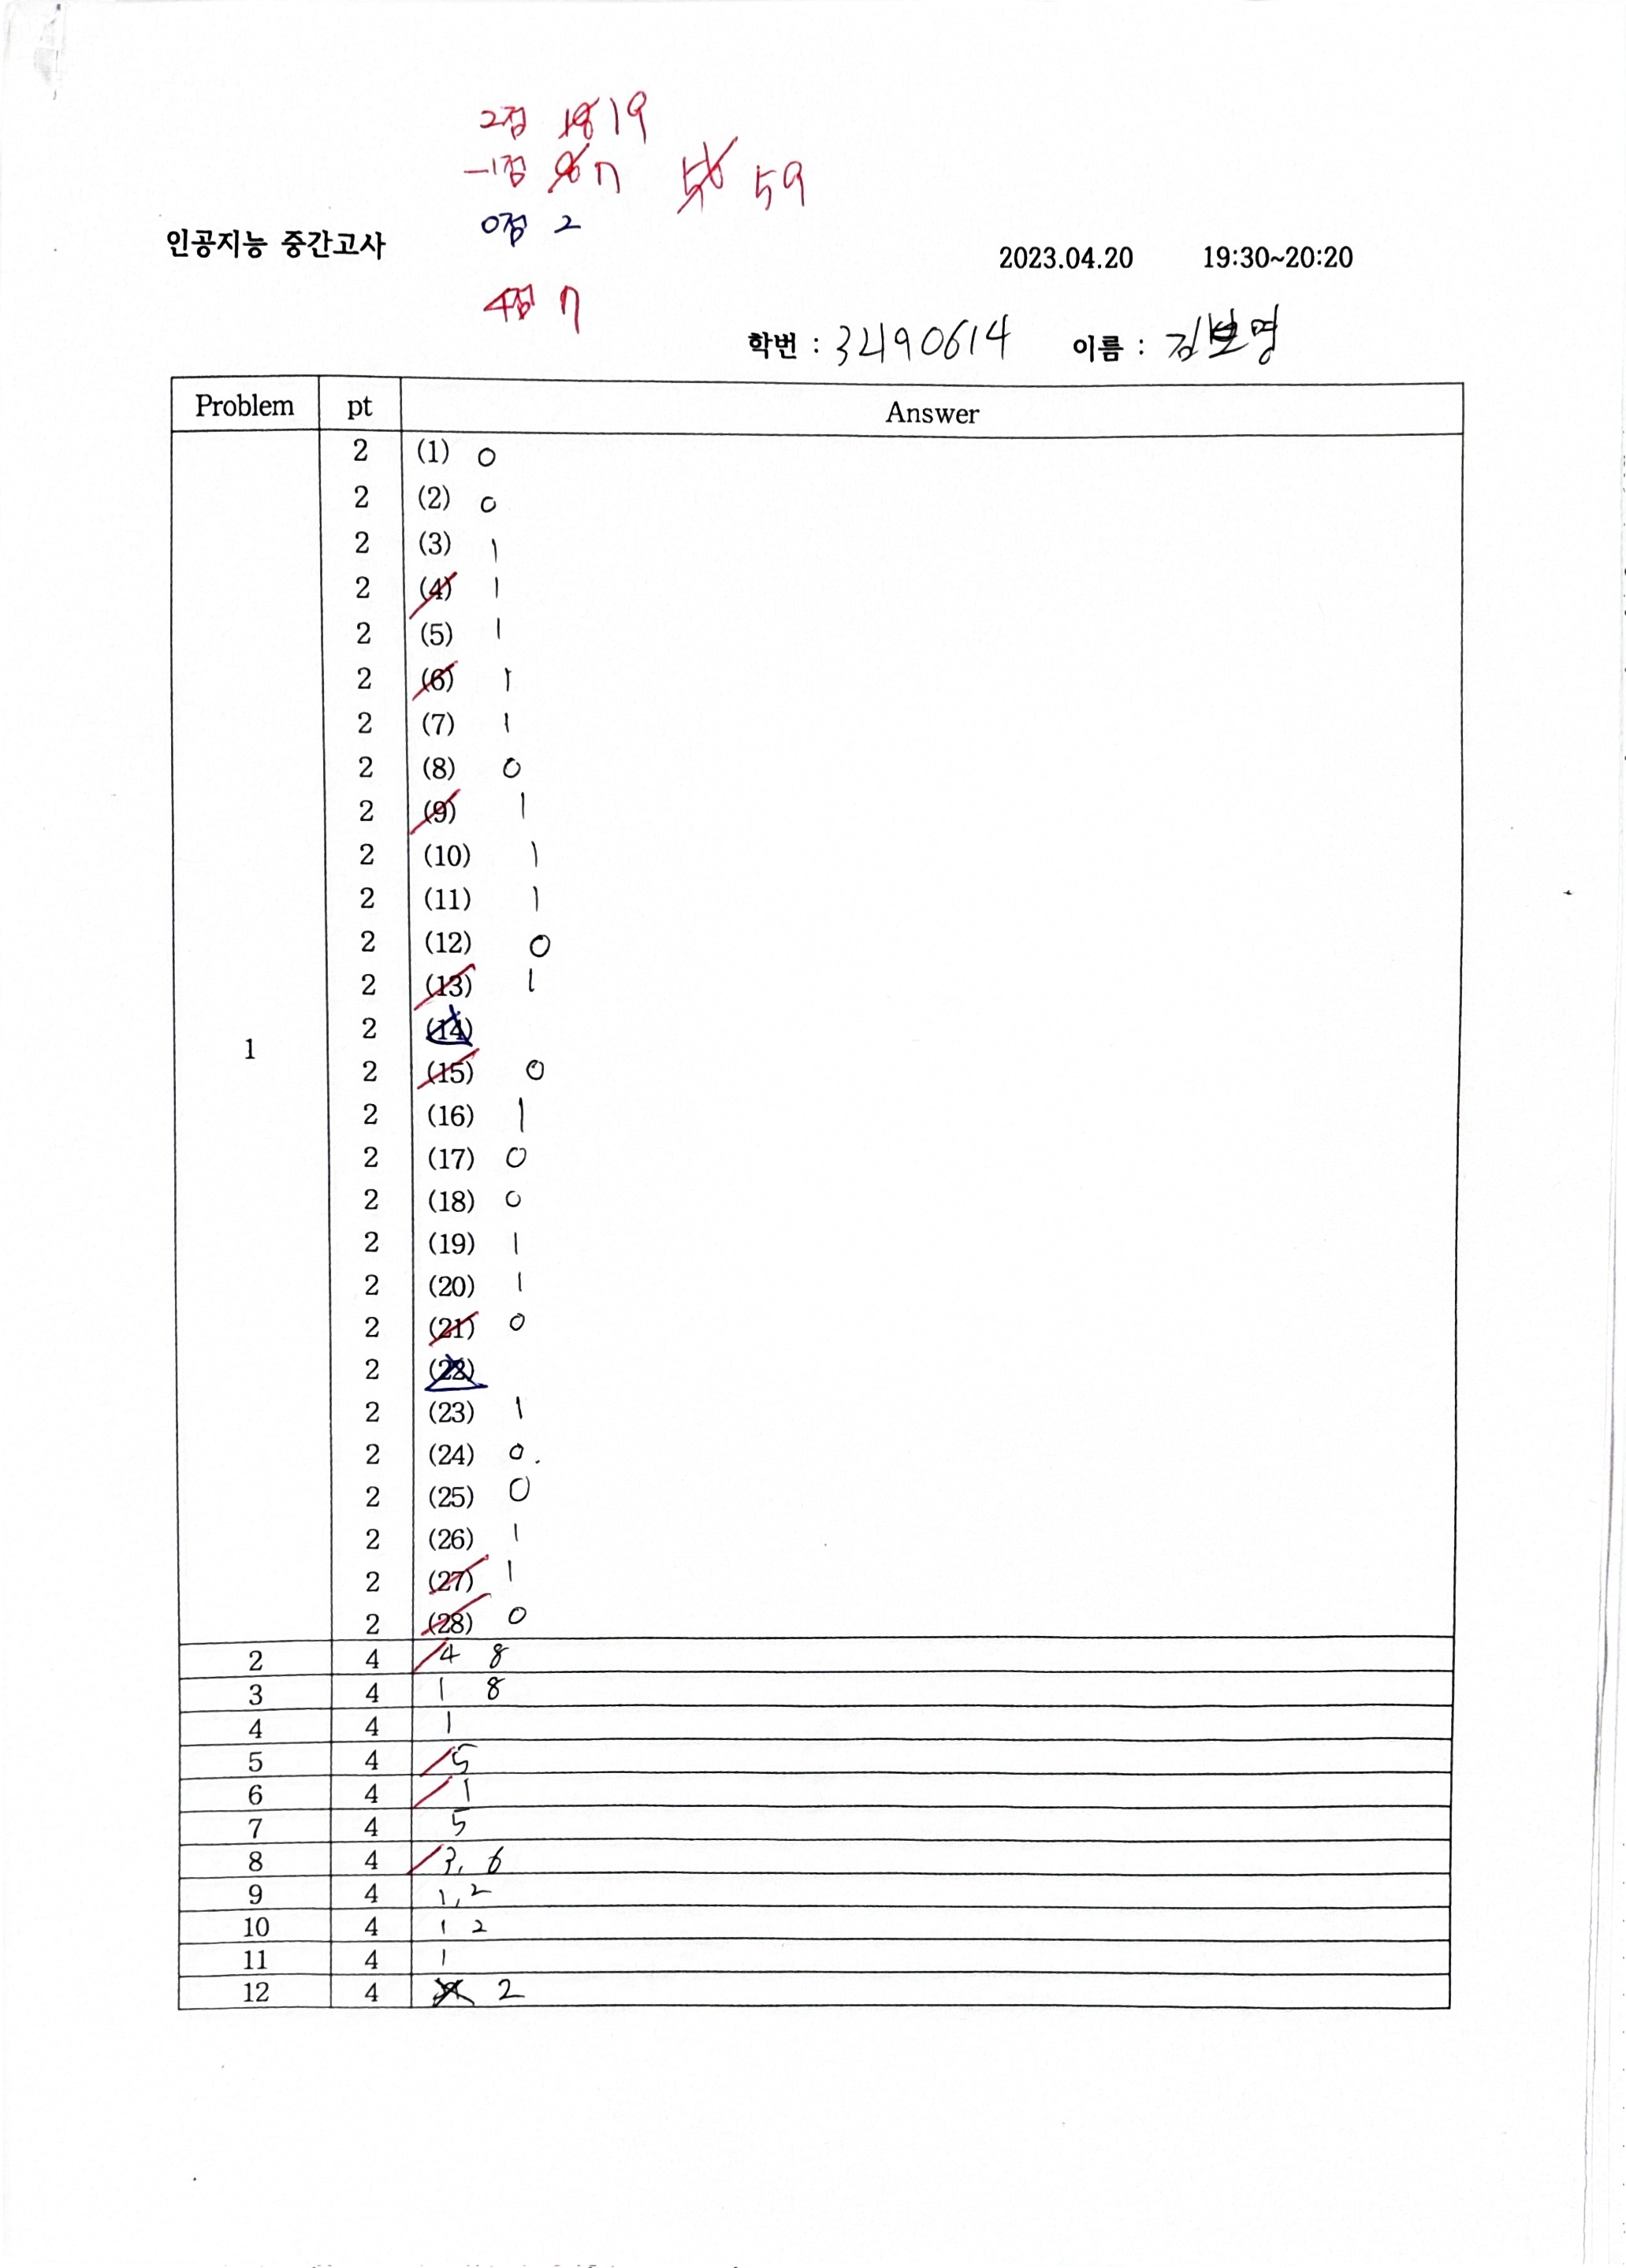 2점 18 19
-1점 8 7 56 59
0점 2
인공지능 중간고사
2023.04.20 19:30~20:20
4점 7
학번 : 32190614 이름 : 김보영
Problem pt Answer
2 (1) 0
2 (2) 0
2 (3) 1
2 (4) 1
2 (5) 1
2 (6) 1
2 (7) 1
2 (8) 0
2 (9) 1
2 (10) 1
2 (11) 1
2 (12) 0
2 (13) 1
2 (14)
1
2 (15) 0
2 (16) 1
2 (17) 0
2 (18) 0
2 (19) 1
2 (20) 1
2 (21) 0
2 (22)
2 (23) 1
2 (24) 0.
2 (25) 0
2 (26) 1
2 (27) 1
2 (28) 0
2 4 4 8
3 4 1 8
4 4 1
5 4 5
6 4 1
7 4 5
8 4 3, 6
9 4 1, 2
10 4 1 2
11 4 1
12 4 2